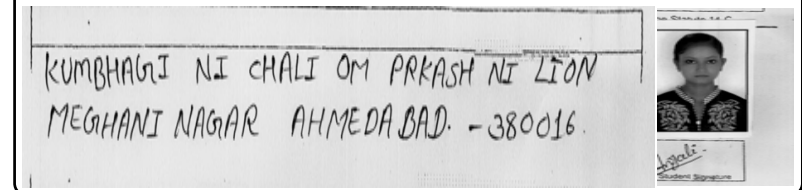 KUMBHAGI NI CHALI OM PRKASH NI LION
MEGHANI NAGAR AHMEDABAD. - 380016.
Student Signature